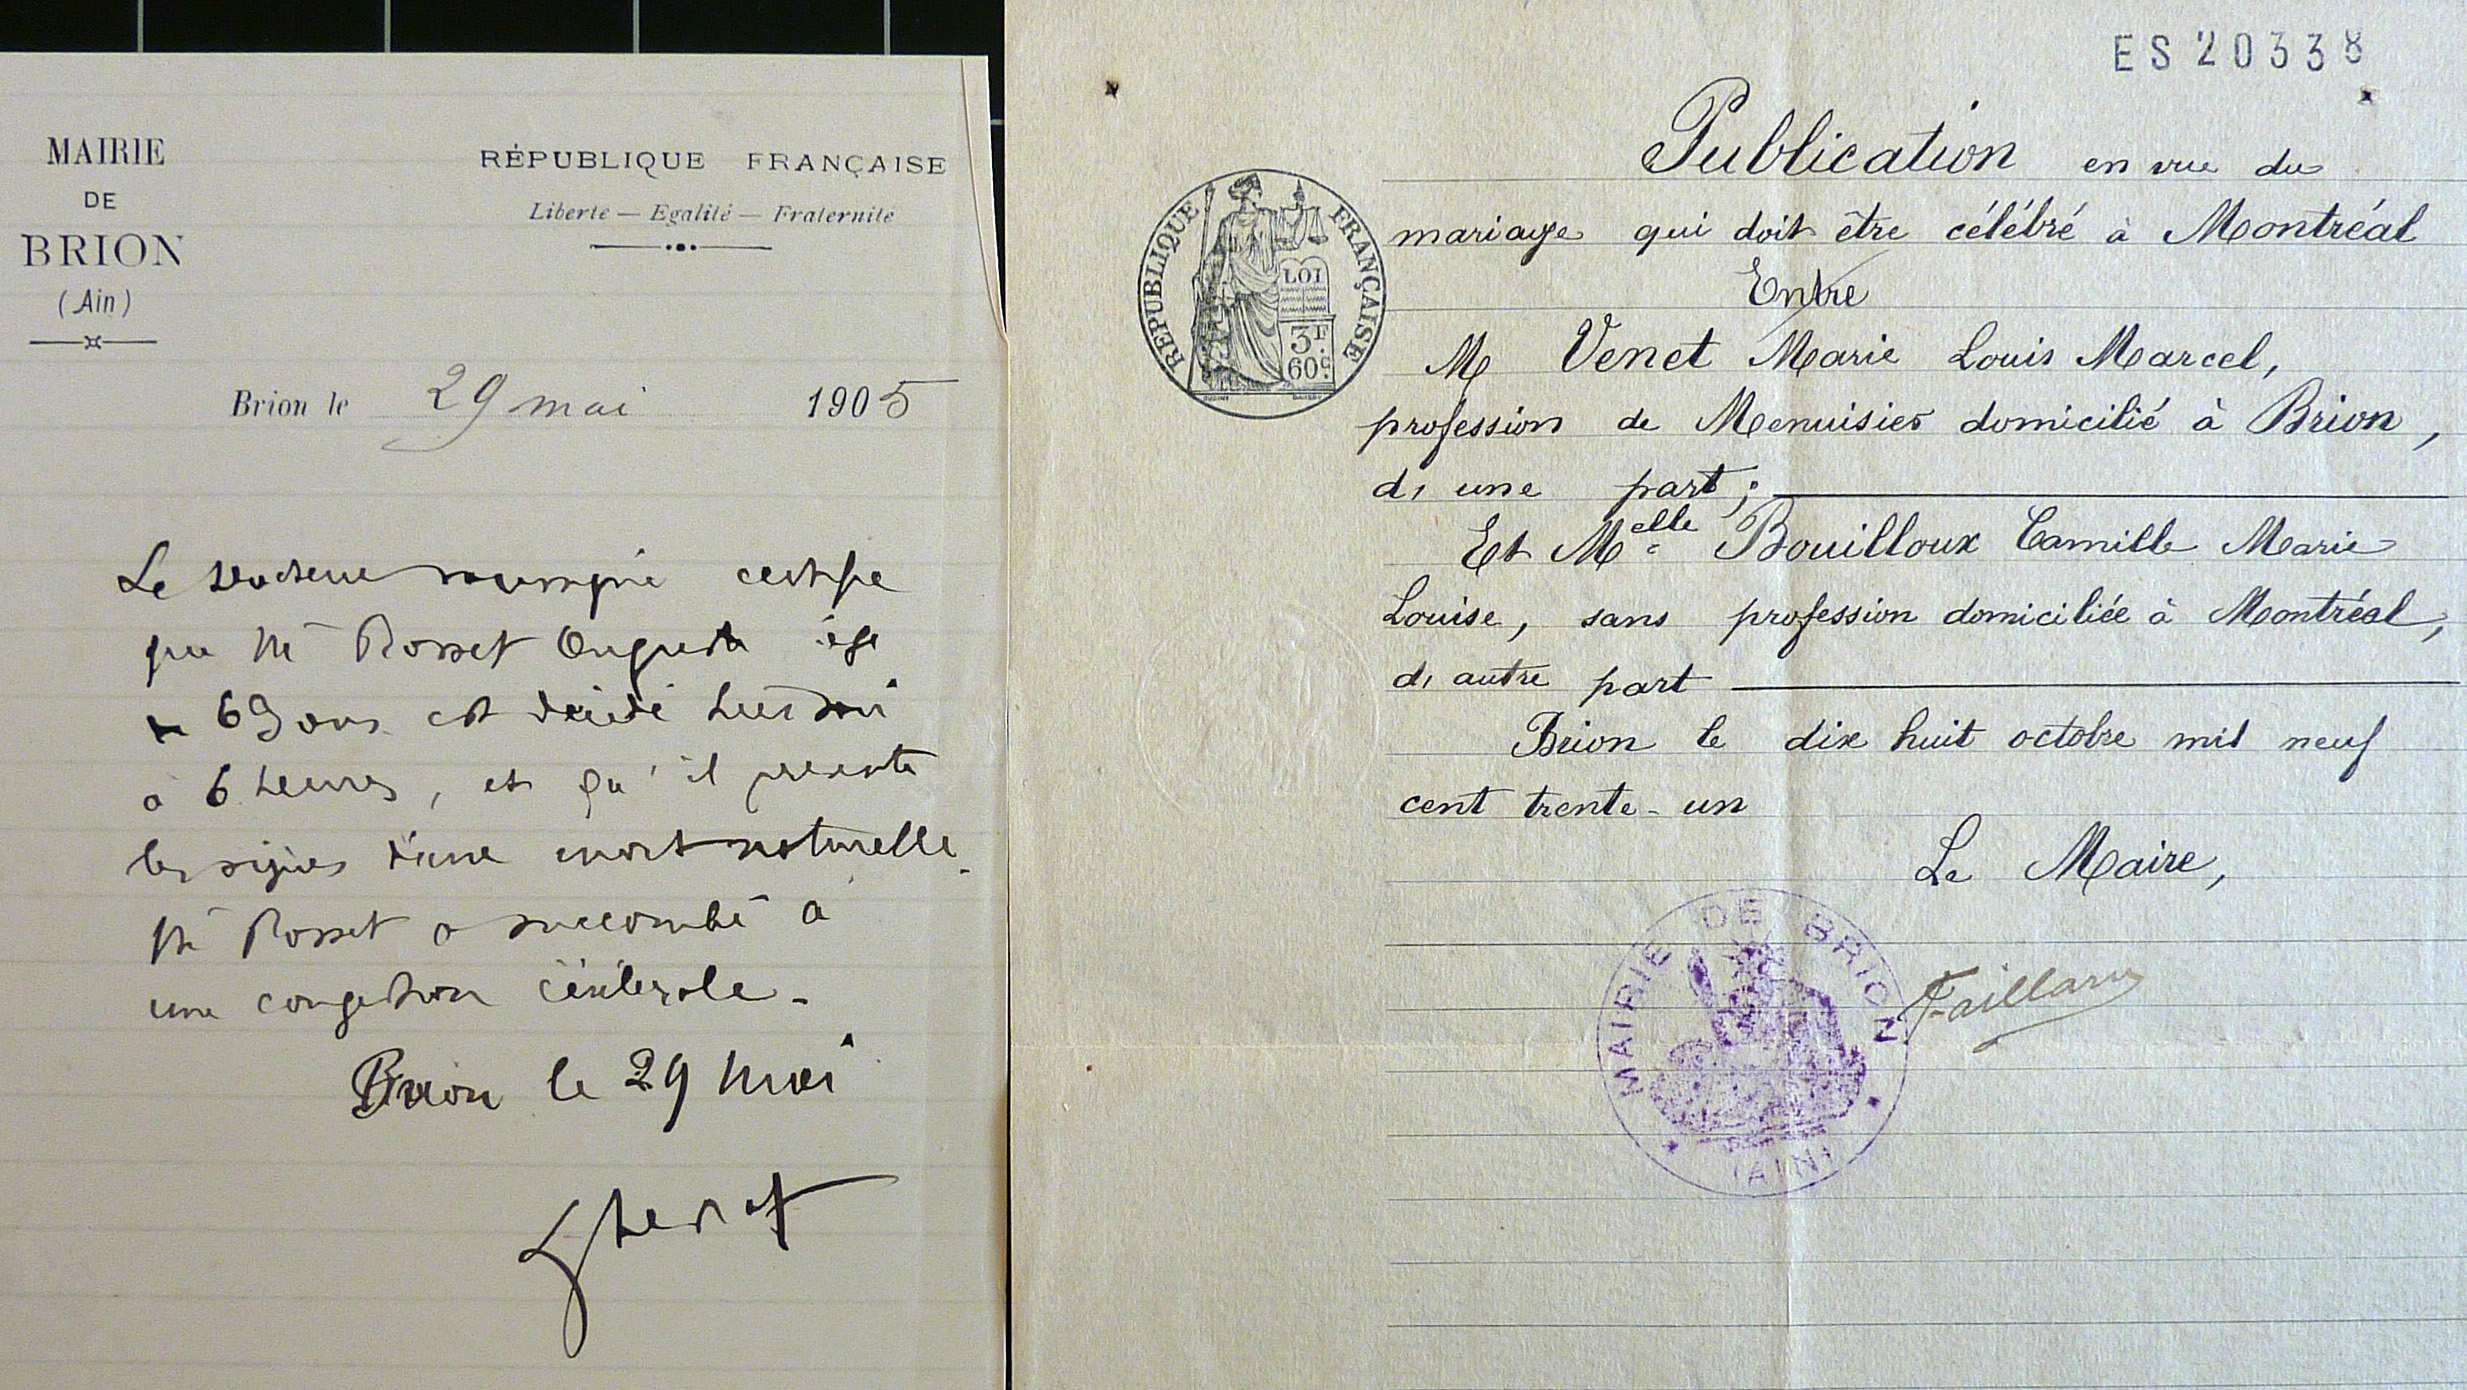 MAIRIE
DE
BRION
(Ain)
RÉPUBLIQUE FRANÇAISE
Liberté — Egalité — Fraternité
Brion le 29 mai 1905
Le docteur soussigné certifie
que Mr Rosset Auguste âgé
de 69 ans est décédé
à 6 heures, et qu'il présente
les signes d'une mort naturelle.
Mr Rosset a succombé à
une congestion cérébrale.
Brion le 29 mai
ES 20338
Publication en vue du
mariage qui doit être célébré à Montréal
Entre
M Venet Marie Louis Marcel,
profession de Menuisier domicilié à Brion,
d' une part;
Et Melle Bouilloux Camille Marie
Louise, sans profession domiciliée à Montréal,
d' autre part
Brion le dix huit octobre mil neuf
cent trente-un
Le Maire,
RÉPUBLIQUE FRANÇAISE
LOI
3F.
60c.
MAIRIE DE BRION
(AIN)